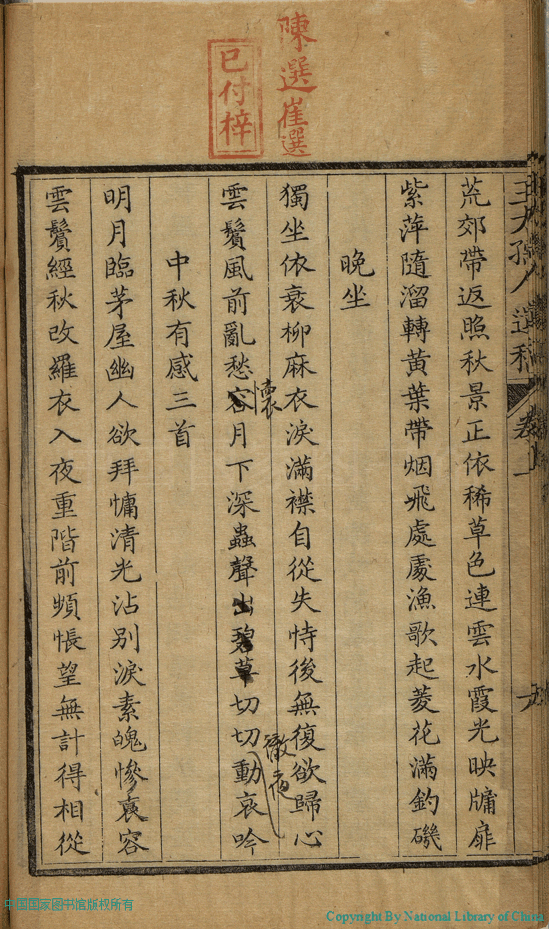 陳選崔選
已付梓
荒郊帶返照秋景正依稀草色連雲水霞光映牗扉
紫萍隨溜轉黃葉帶烟飛處處漁歌起菱花滿釣磯
晚坐
獨坐依衰柳麻衣淚滿襟自從失恃後無復欲歸心
雲鬢風前亂愁容月下深蟲聲出碧草切切動哀吟
懷
徹夜
中秋有感三首
明月臨茅屋幽人欲拜慵清光沾别淚素魄慘哀容
雲鬢經秋改羅衣入夜重階前頻悵望無計得相從
中国国家图书馆版权所有
Copyright By National Library of China